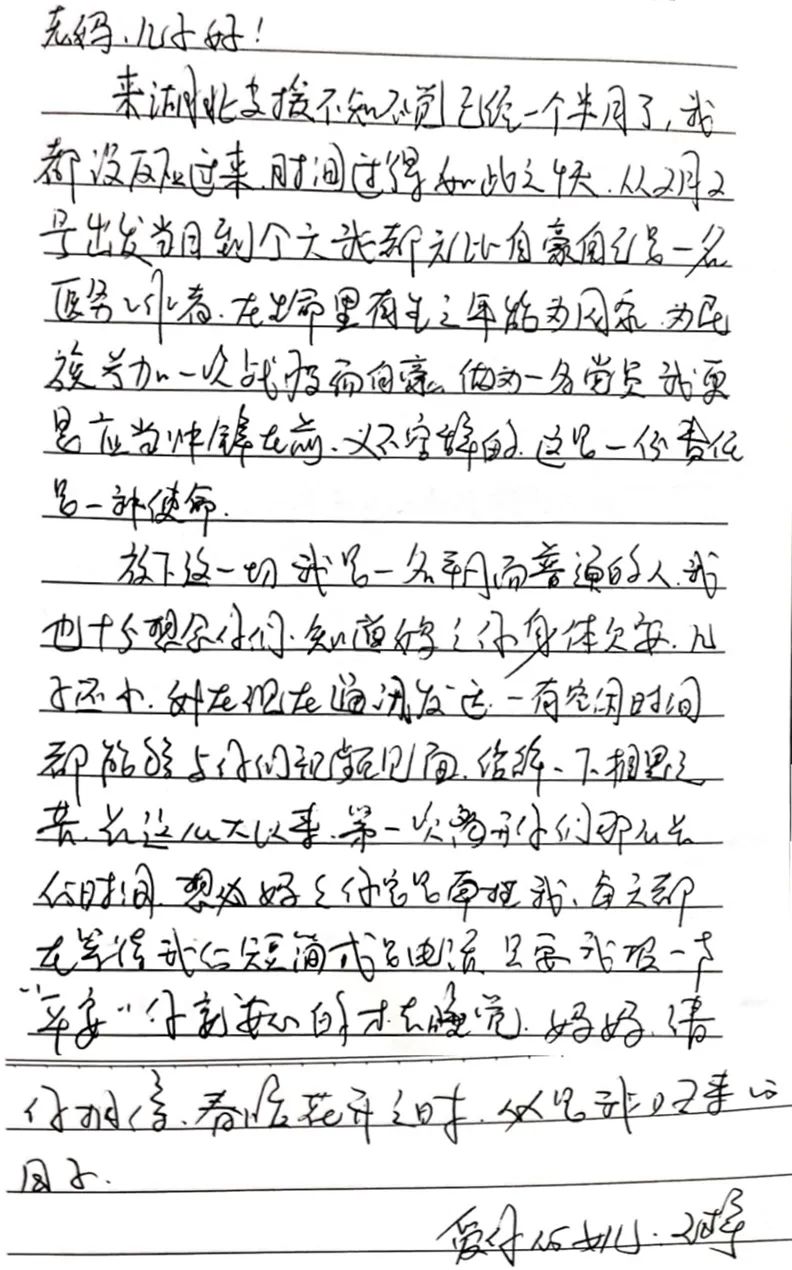 老妈、儿子好！
来湖北支援不知不觉已经一个半月了，我
都没反应过来，时间过得如此之快，从2月2
号出发当日到今天我都无比自豪自己是一名
医务工作者，在生命里有生之年能为国家、为民
族参加一次战疫而自豪。做为一名党员我更
是应当冲锋在前、义不容辞的，这是一份责任
是一种使命。
放下这一切我是一名平凡而普通的人，我
也十分想念你们，知道妈妈你身体欠安，儿
子还小，好在现在通讯发达，一有空闲时间
都能够与你们视频见面，缓解一下相思之
苦，长这么大以来，第一次离开你们那么长
的时间，想必妈妈你总是牵挂我，每天都
在等待我的短简或是电话，只要我报一声
“平安”你就安心的才去睡觉，妈妈，请
你相信，春暖花开之时，必是我归来的
日子。
爱你的女儿：